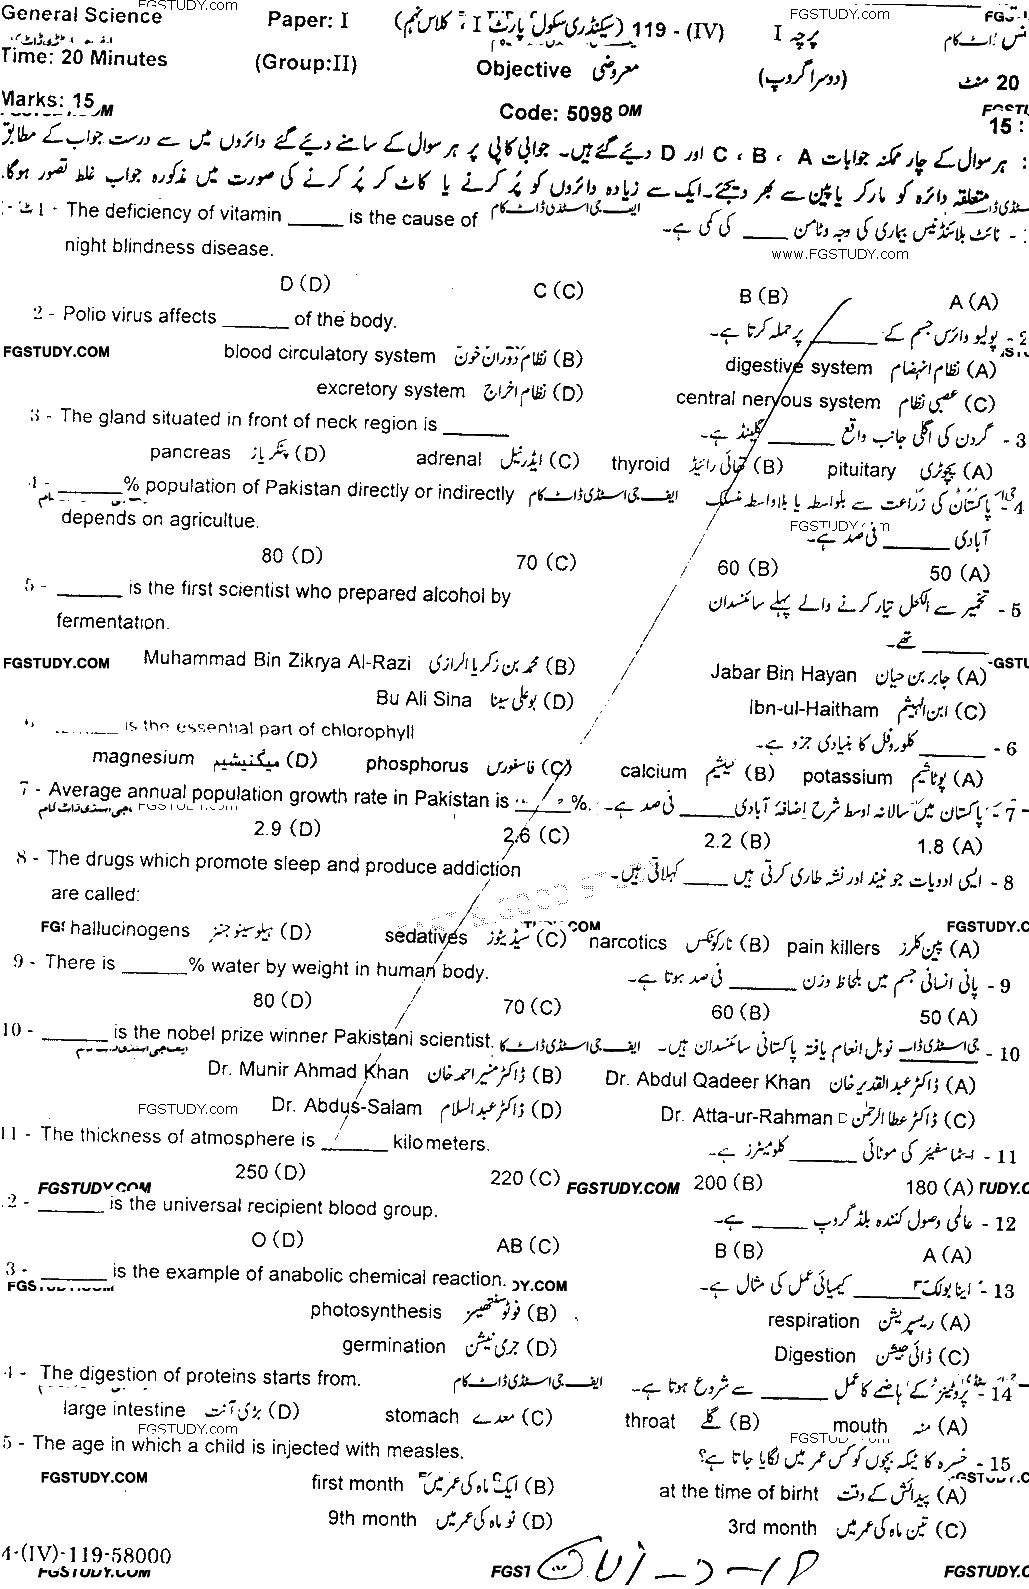 FGSTUDY.com FGSTUDY.com
General Science Paper: I (سیکنڈری سکول پارٹ I ، کلاس نہم) 119 - (IV) پرچہ I
Time: 20 Minutes (Group:II) Objective معروضی (دوسرا گروپ) 20 منٹ
Marks: 15 Code: 5098 15 :
ہر سوال کے چار ممکنہ جوابات A ، B ، C اور D دیئے گئے ہیں۔ جوابی کاپی پر ہر سوال کے سامنے دیئے گئے دائروں میں سے درست جواب کے مطابق
متعلقہ دائرہ کو مارکر یا پین سے بھر دیجئے۔ ایک سے زیادہ دائروں کو پُر کرنے یا کاٹ کر پُر کرنے کی صورت میں مذکورہ جواب غلط تصور ہوگا۔
1 - The deficiency of vitamin ______ is the cause of ایف جی اسٹڈی ڈاٹ کام نائٹ بلائنڈنیس بیماری کی وجہ وٹامن ____ کی کمی ہے۔
night blindness disease. www.FGSTUDY.com
D (D) C (C) B (B) A (A)
2 - Polio virus affects _______ of the body. پولیو وائرس جسم کے ______ پر حملہ کرتا ہے۔ - 2
FGSTUDY.COM blood circulatory system نظام دوران خون (B) digestive system نظام انہضام (A)
excretory system نظام اخراج (D) central nervous system عصبی نظام (C)
3 - The gland situated in front of neck region is _______ گردن کی اگلی جانب واقع ______ گلینڈ ہے۔ - 3
pancreas پنکریاز (D) adrenal ایڈرینل (C) thyroid تھائی رائیڈ (B) pituitary پچوٹری (A)
_______% population of Pakistan directly or indirectly ایف جی اسٹڈی ڈاٹ کام پاکستان کی زراعت سے بلواسطہ یا بلاواسطہ منسلک 4
depends on agricultue. FGSTUDY. آبادی ______ فی صد ہے۔
80 (D) 70 (C) 60 (B) 50 (A)
5 - _______ is the first scientist who prepared alcohol by تخمیر سے الکحل تیار کرنے والے پہلے سائنسدان - 5
fermentation. ______ تھے۔
FGSTUDY.COM Muhammad Bin Zikrya Al-Razi محمد بن زکریا الرازی (B) Jabar Bin Hayan جابر بن حیان (A)
Bu Ali Sina بوعلی سینا (D) Ibn-ul-Haitham ابن الہیثم (C)
_______ is the essential part of chlorophyll ______ کلوروفل کا بنیادی جزو ہے۔ - 6
magnesium میگنیشیم (D) phosphorus فاسفورس (C) calcium کیلشیم (B) potassium پوٹاشیم (A)
7 - Average annual population growth rate in Pakistan is ______%. پاکستان میں سالانہ اوسط شرح اضافۂ آبادی ______ فی صد ہے۔ - 7
2.9 (D) 2.6 (C) 2.2 (B) 1.8 (A)
8 - The drugs which promote sleep and produce addiction ایسی ادویات جو نیند اور نشہ طاری کرتی ہیں ____ کہلاتی ہیں۔ - 8
are called:
hallucinogens ہیلوسینوجنز (D) sedatives سیڈیٹوز (C) narcotics نارکوٹکس (B) pain killers پین کلرز (A)
9 - There is _______% water by weight in human body. پانی انسانی جسم میں بلحاظ وزن ______ فی صد ہوتا ہے۔ - 9
80 (D) 70 (C) 60 (B) 50 (A)
10 - _______ is the nobel prize winner Pakistani scientist. ایف جی اسٹڈی ڈاٹ کا نوبل انعام یافتہ پاکستانی سائنسدان ہیں۔ - 10
Dr. Munir Ahmad Khan ڈاکٹر منیر احمد خان (B) Dr. Abdul Qadeer Khan ڈاکٹر عبدالقدیر خان (A)
FGSTUDY.com Dr. Abdus-Salam ڈاکٹر عبدالسلام (D) Dr. Atta-ur-Rahman ڈاکٹر عطاالرحمٰن (C)
11 - The thickness of atmosphere is _______ kilometers. ______ کلومیٹرز ہے۔ - 11
250 (D) 220 (C) FGSTUDY.COM 200 (B) 180 (A)
_______ is the universal recipient blood group. عالمی وصول کنندہ بلڈ گروپ ______ ہے۔ - 12
O (D) AB (C) B (B) A (A)
_______ is the example of anabolic chemical reaction. اینابولک ______ کیمیائی عمل کی مثال ہے۔ - 13
photosynthesis فوٹو سنتھیسز (B) respiration ریسپریشن (A)
germination جرمی نیشن (D) Digestion ڈائی جیشن (C)
The digestion of proteins starts from. ایف جی اسٹڈی ڈاٹ کام پروٹینز کے ہاضمے کا عمل ______ سے شروع ہوتا ہے۔ - 14
large intestine بڑی آنت (D) stomach معدے (C) throat گلے (B) mouth منہ (A)
FGSTUDY.com
The age in which a child is injected with measles. خسرہ کا ٹیکہ بچوں کو کس عمر میں لگایا جاتا ہے؟ - 15
FGSTUDY.COM first month ایک ماہ کی عمر میں (B) at the time of birht پیدائش کے وقت (A)
9th month نو ماہ کی عمر میں (D) 3rd month تین ماہ کی عمر میں (C)
4-(IV)-119-58000
FGSTUDY.COM